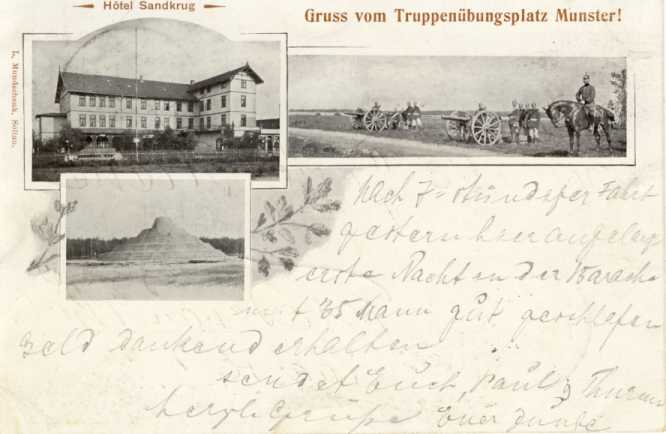 Hôtel Sandkrug
Gruss vom Truppenübungsplatz Munster!
L. Mundschenk, Soltau.
Nach 7-stündiger Fahrt
gestern hier angelangt
erste Nacht in der Barack
mit 35 Mann gut geschlafen
Geld dankend erhalten
sendet Euch, Paul &
herzl. Grüße Euer